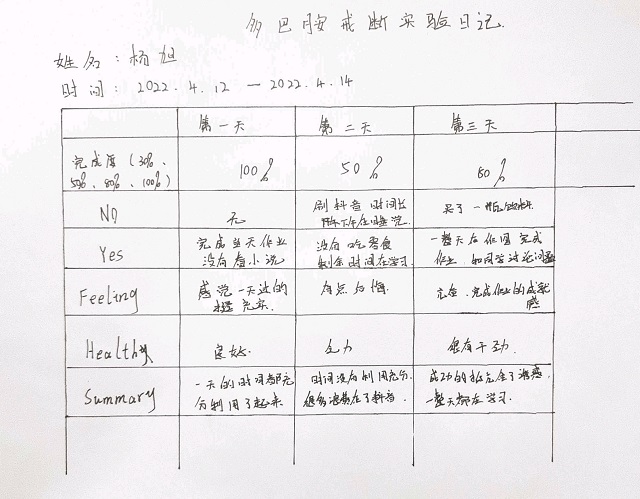 多巴胺戒断实验日记.
姓名：杨旭
时间：2022.4.12 — 2022.4.14
第一天 第二天 第三天
完成度（30%、
50%、80%、100%）
100% 50% 80%
NO
无
刷抖音时间长
下午在睡觉.
买了一瓶饮料.
Yes
完成当天作业
没有看小说
没有吃零食
剩余时间在学习.
一整天后作图完成
作业.和同学讨论问题
Feeling
感觉一天过的
很充实.
有点后悔
充实.完成作业的成就
感
Health
良好.
乏力
很有干劲.
Summary
一天的时间都充
分利用了起来.
时间没有利用充分.
很多浪费在了抖音.
成功的抵抗住了诱惑.
一整天都在学习.